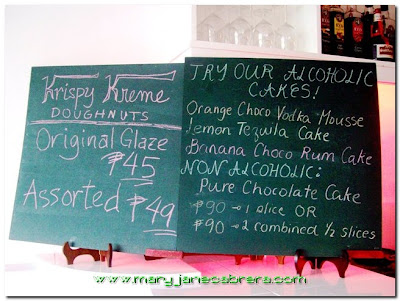 Krispy Kreme
DOUGHNUTS
Original Glaze
₱45
Assorted ₱49
TRY OUR ALCOHOLIC
CAKES!
Orange Choco Vodka Mousse
Lemon Tezuila Cake
Banana Choco Rum Cake
NON ALCOHOLIC:
Pure Chocolate Cake
₱90 → 1 slice OR
₱90 → 2 combined ½ slices
www.maryjanecabrera.com